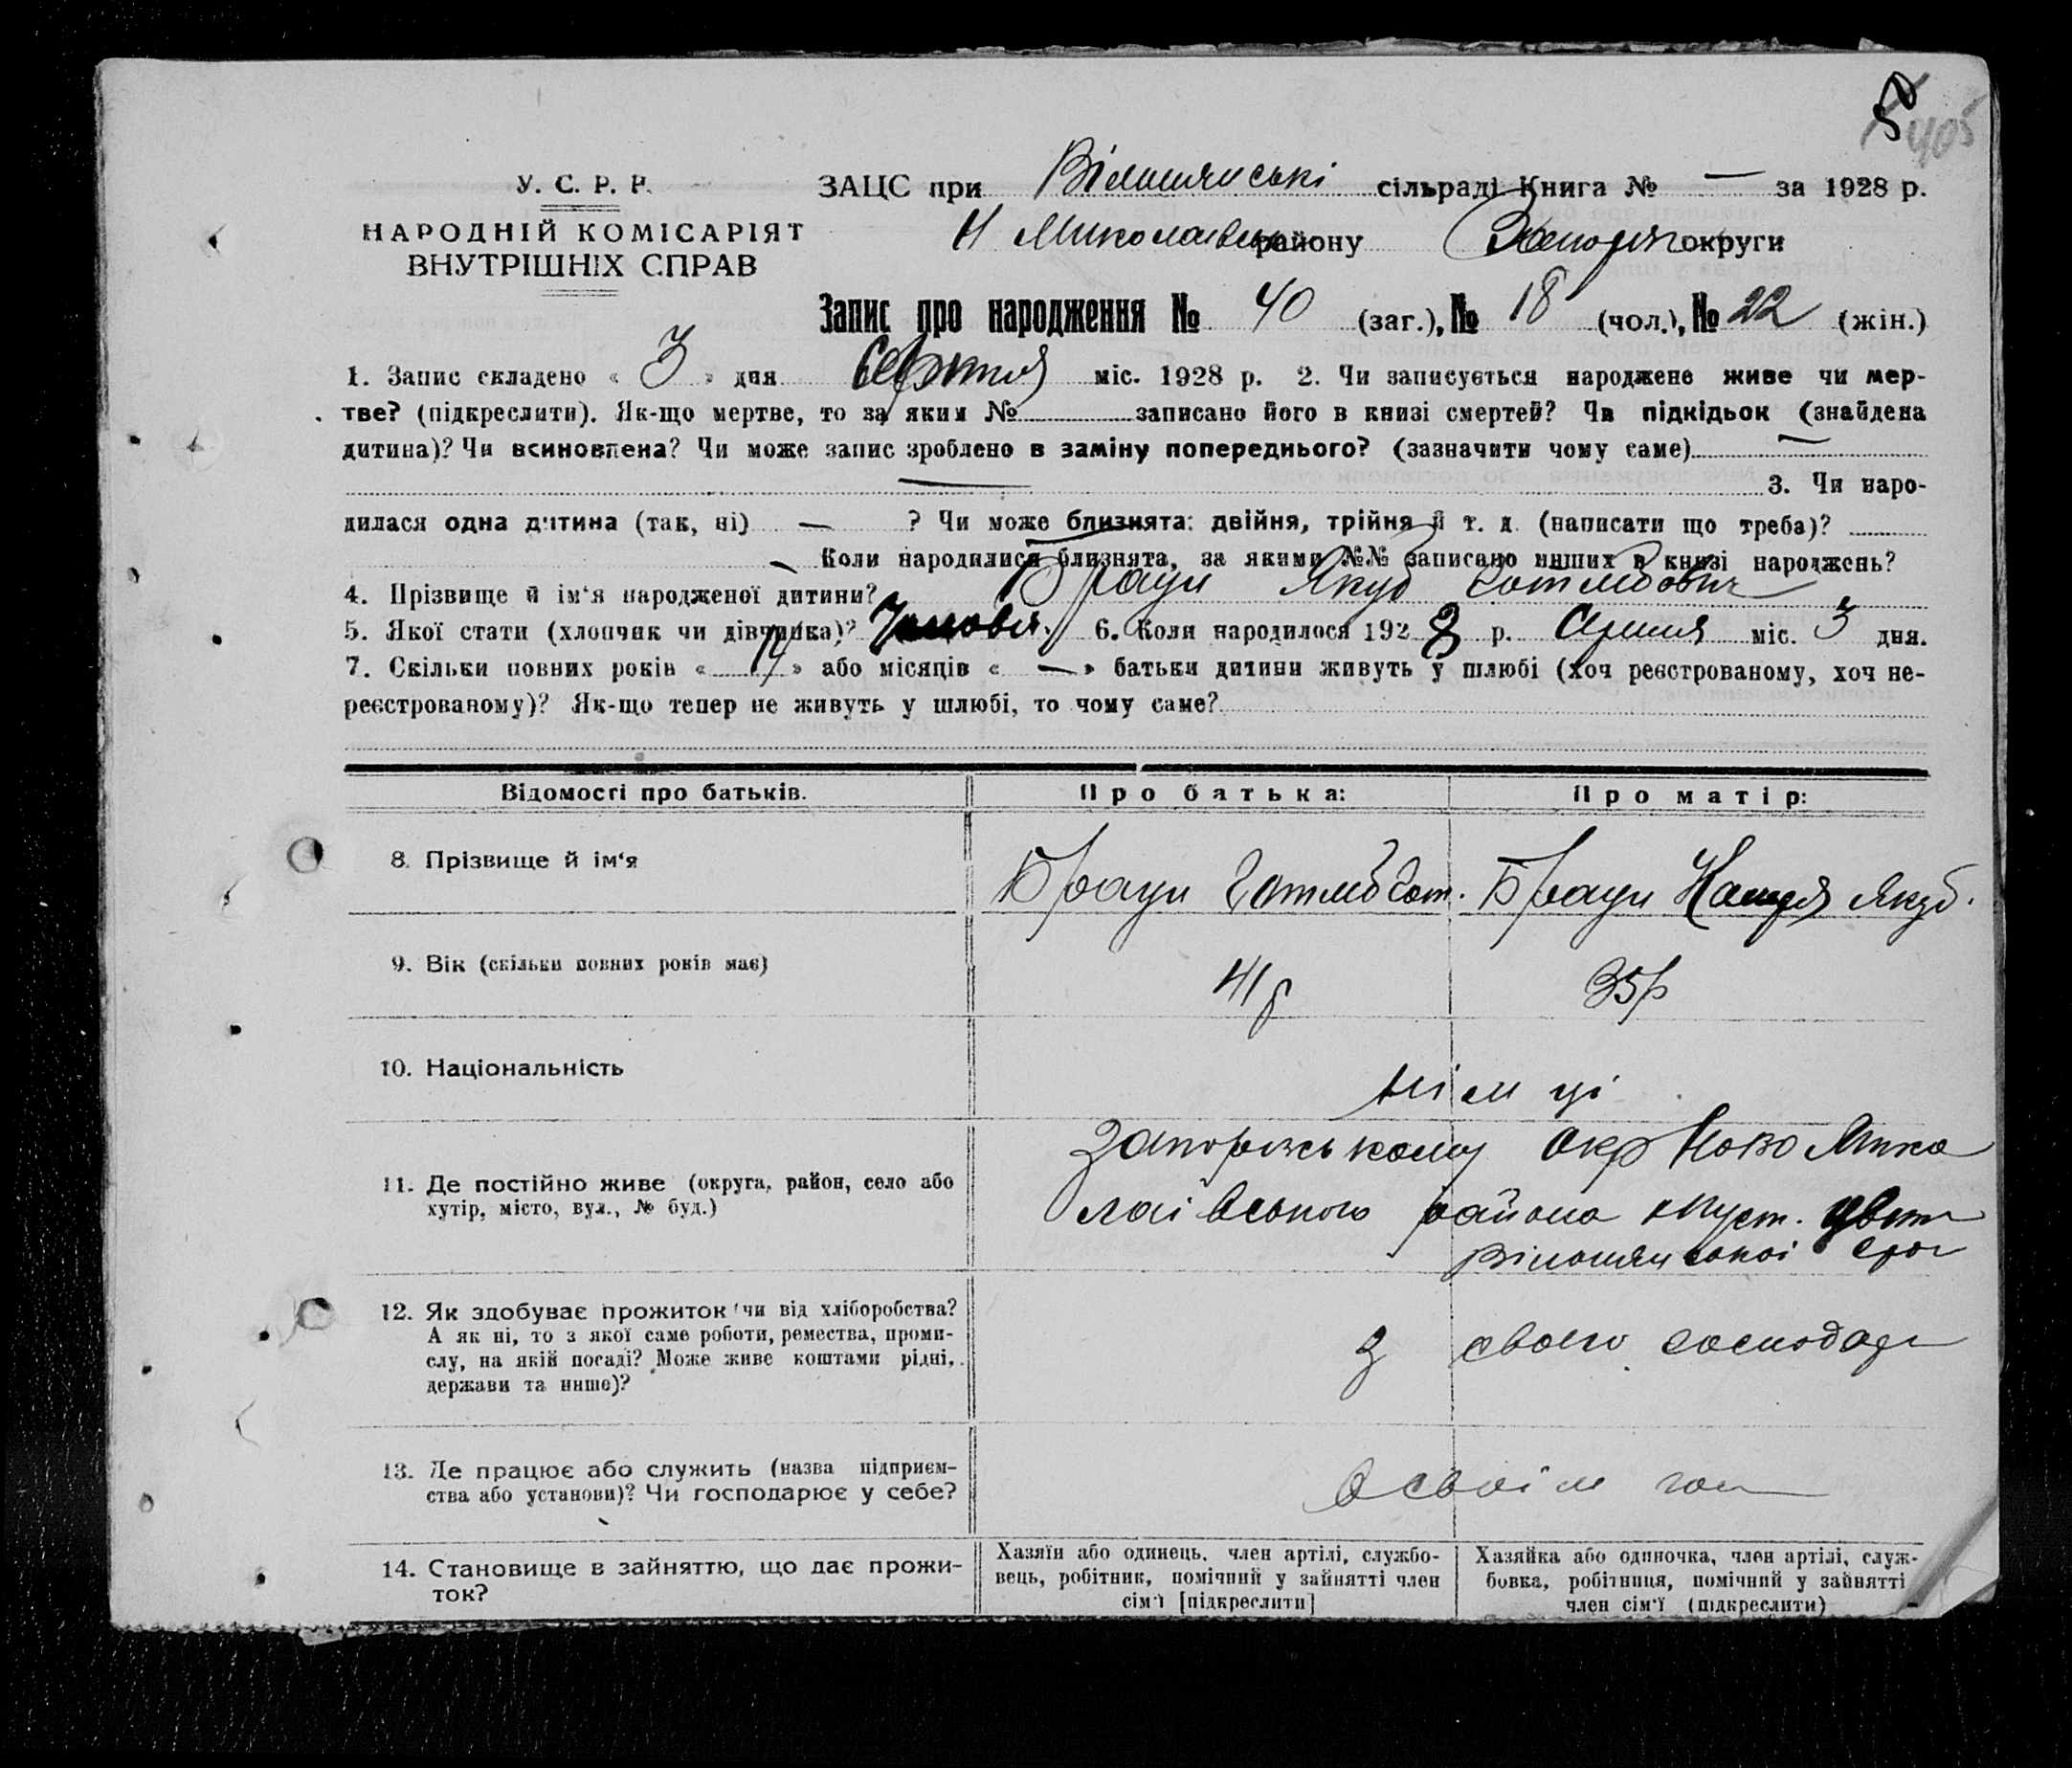 405
У. С. Р. Р.
НАРОДНІЙ КОМІСАРІЯТ
ВНУТРІШНІХ СПРАВ
ЗАЦС при Вільшанські сільраді Книга № — за 1928 р.
Н Миколаївськ району Запоріз округи
Запис про народження № 40 (заг.), № 18 (чол.), № 22 (жін.)
1. Запис складено « 3 » дня Серпня міс. 1928 р. 2. Чи записується народжене живе чи мер-
тве? (підкреслити). Як-що мертве, то за яким № записано його в книзі смертей? Чи підкідьок (знайдена
дитина)? Чи всиновлена? Чи може запис зроблено в заміну попереднього? (зазначити чому саме) —
— 3. Чи наро-
дилася одна дитина (так, ні) — ? Чи може близнята: двійня, трійня й т. д. (написати що треба)?
Коли народилися близнята, за якими №№ записано инших в книзі народжень?
4. Прізвище й ім‘я народженої дитини? Браун Якуб Готлібович
5. Якої стати (хлопчик чи дівчинка)? Чолов. 6. Коли народилося 1928 р. Серпня міс. 3 дня.
7. Скільки повних років « 14 » або місяців « — » батьки дитини живуть у шлюбі (хоч реєстрованому, хоч не-
реєстрованому)? Як-що тепер не живуть у шлюбі, то чому саме?
Відомості про батьків. Про батька: Про матір:
8. Прізвище й ім‘я Браун Готліб Гот. Браун Якуб.
9. Вік (скільки повних років має) 41р 35р
10. Національність німці
11. Де постійно живе (округа, район, село або
хутір, місто, вул., № буд.)
Запорізькому Окр Ново Мико
лаївського района
Вільшанської
12. Як здобуває прожиток (чи від хліборобства?
А як ні, то з якої саме роботи, ремества, проми-
слу, на якій посаді? Може живе коштами рідні,
держави та инше)?
з свого господар
13. Де працює або служить (назва підприєм-
ства або установи)? Чи господарює у себе?
в своїм гос
14. Становище в зайняттю, що дає прожи-
ток?
Хазяїн або одинець, член артілі, службо-
вець, робітник, помічний у зайнятті член
сім‘ї [підкреслити]
Хазяйка або одиночка, член артілі, служ-
бовка, робітниця, помічний у зайнятті
член сім‘ї (підкреслити)